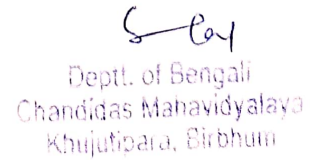 Deptt. of Bengali
Chandidas Mahavidyalaya
Khujutipara, Birbhum